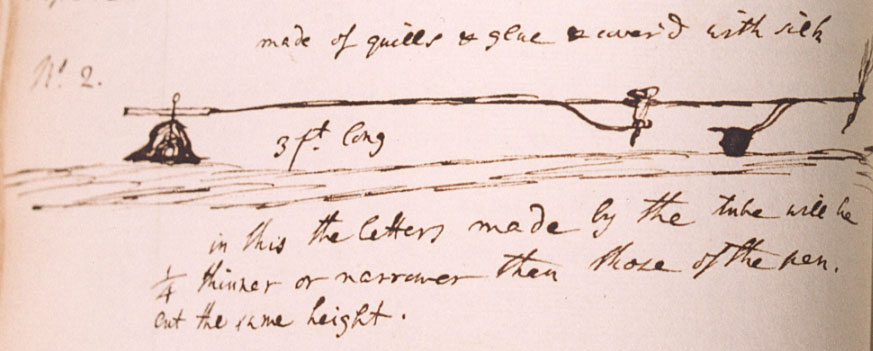 made of quills & glue & cover'd with silk
No. 2.
3 ft. long
in this the letters made by the tube will be
1/4 thinner or narrower then those of the pen.
but the same height.